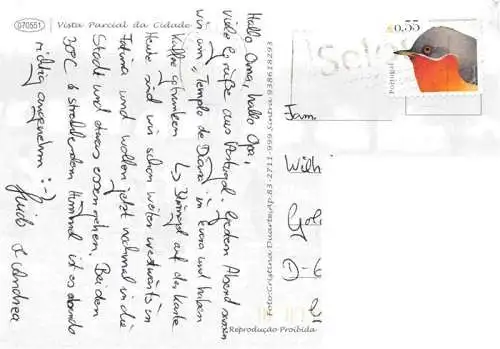 070551
Vista Parcial da Cidade
Hallo Oma, hallo Opa,
viele Grüße aus Portugal. Jeden Abend waren
wir am "Templo de Diana" in Evora und haben
Kaffee getrunken. ↳ Bild auf der Karte
Heute sind wir schon weiter westwärts in
Fatima und wollen jetzt nochmal in die
Stadt und etwas essen gehen. Bei den
30°C & strahlendem Himmel ist es abends
richtig angenehm :-)
Guido & Andrea
Foto: Cristina Duarte
Reprodução Proibida
€0,35
Portugal
Fam.
Wilh